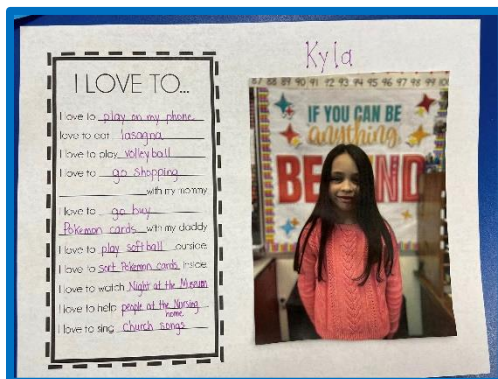 Kyla
I LOVE TO...
I love to play on my phone
I love to eat lasagna
I love to play volleyball
I love to go shopping
with my mommy
I love to go buy
Pokemon cards with my daddy
I love to play softball outside
I love to sort Pokemon cards inside
I love to watch Night at the Museum
I love to help people at the Nursing
home
I love to sing church songs
87 88 89 90 91 92 93 94 95 96 97 98 99 100
IF YOU CAN BE
anything
BE KIND